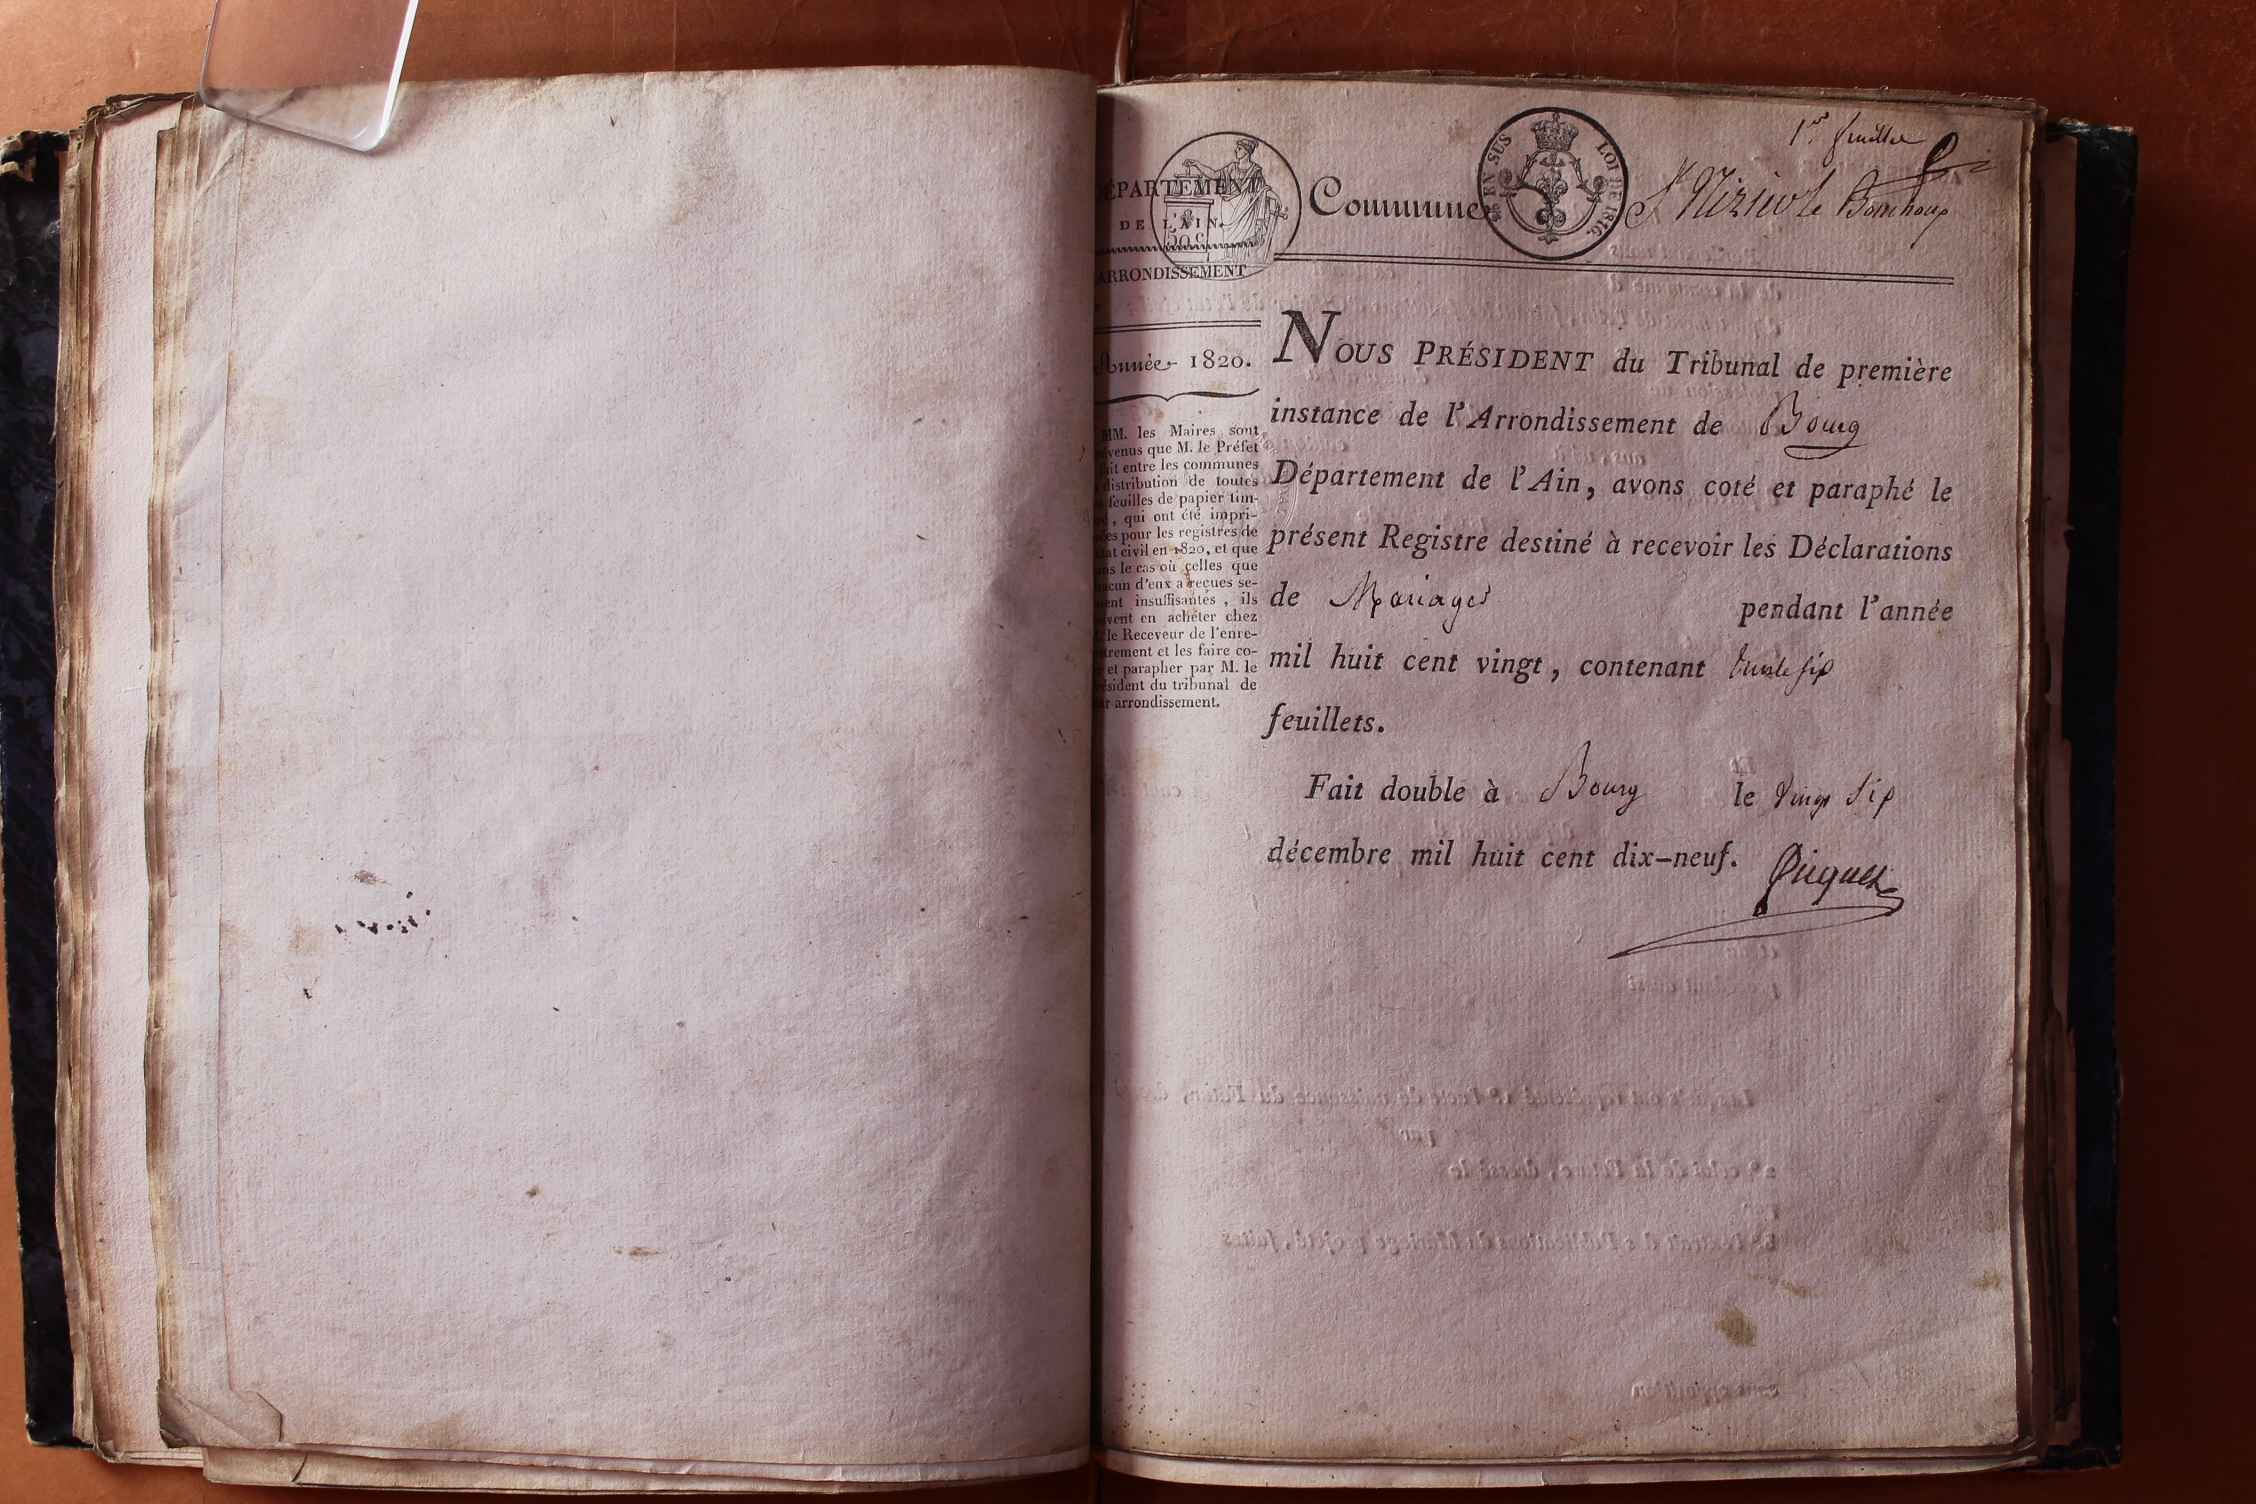 1er feuillet
DÉPARTEMENT
DE L'AIN.
ARRONDISSEMENT
Commune
EN SUS LOI DE 1816.
St Nizier le Bouchoux
Année 1820.
MM. les Maires sont
venus que M. le Préfet
fait entre les communes
distribution de toutes
feuilles de papier tim-
, qui ont été impri-
es pour les registres de
at civil en 1820, et que
ns le cas où celles que
acun d'eux a reçues se-
ent insuffisantes, ils
vent en acheter chez
le Receveur de l'enre-
trement et les faire co-
et parapher par M. le
ésident du tribunal de
ur arrondissement.
NOUS PRÉSIDENT du Tribunal de première
instance de l'Arrondissement de Bourg
Département de l'Ain, avons coté et paraphé le
présent Registre destiné à recevoir les Déclarations
de Mariages pendant l'année
mil huit cent vingt, contenant trente six
feuillets.
Fait double à Bourg le vingt six
décembre mil huit cent dix-neuf.
Piquet